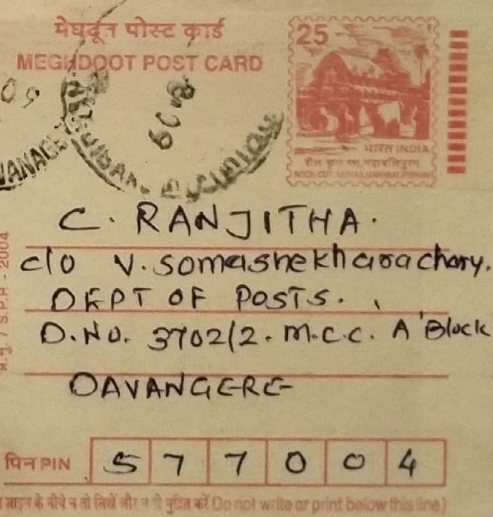 मेघदूत पोस्ट कार्ड
MEGHDOOT POST CARD
25
भारत INDIA
C. RANJITHA.
c/o V. Somashekharachary.
DEPT OF POSTS.
D.No. 3702/2. M.C.C. A' Block
DAVANGERE
पिन PIN 5 7 7 0 0 4
लाइन के नीचे न तो लिखें और न ही मुद्रित करें Do not write or print below this line)
S.P.H - 2004